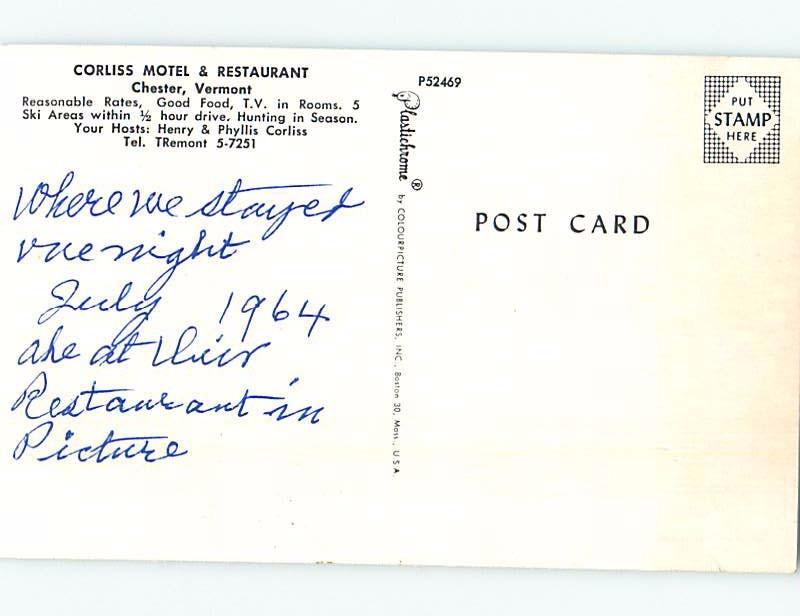 CORLISS MOTEL & RESTAURANT
Chester, Vermont
Reasonable Rates, Good Food, T.V. in Rooms. 5
Ski Areas within ½ hour drive. Hunting in Season.
Your Hosts: Henry & Phyllis Corliss
Tel. TRemont 5-7251
Where we stayed
one night
July 1964
ate at their
Restaurant in
Picture
P52469
Plastichrome ®
by COLOURPICTURE PUBLISHERS, INC., Boston 30, Mass., U.S.A.
POST CARD
PUT
STAMP
HERE